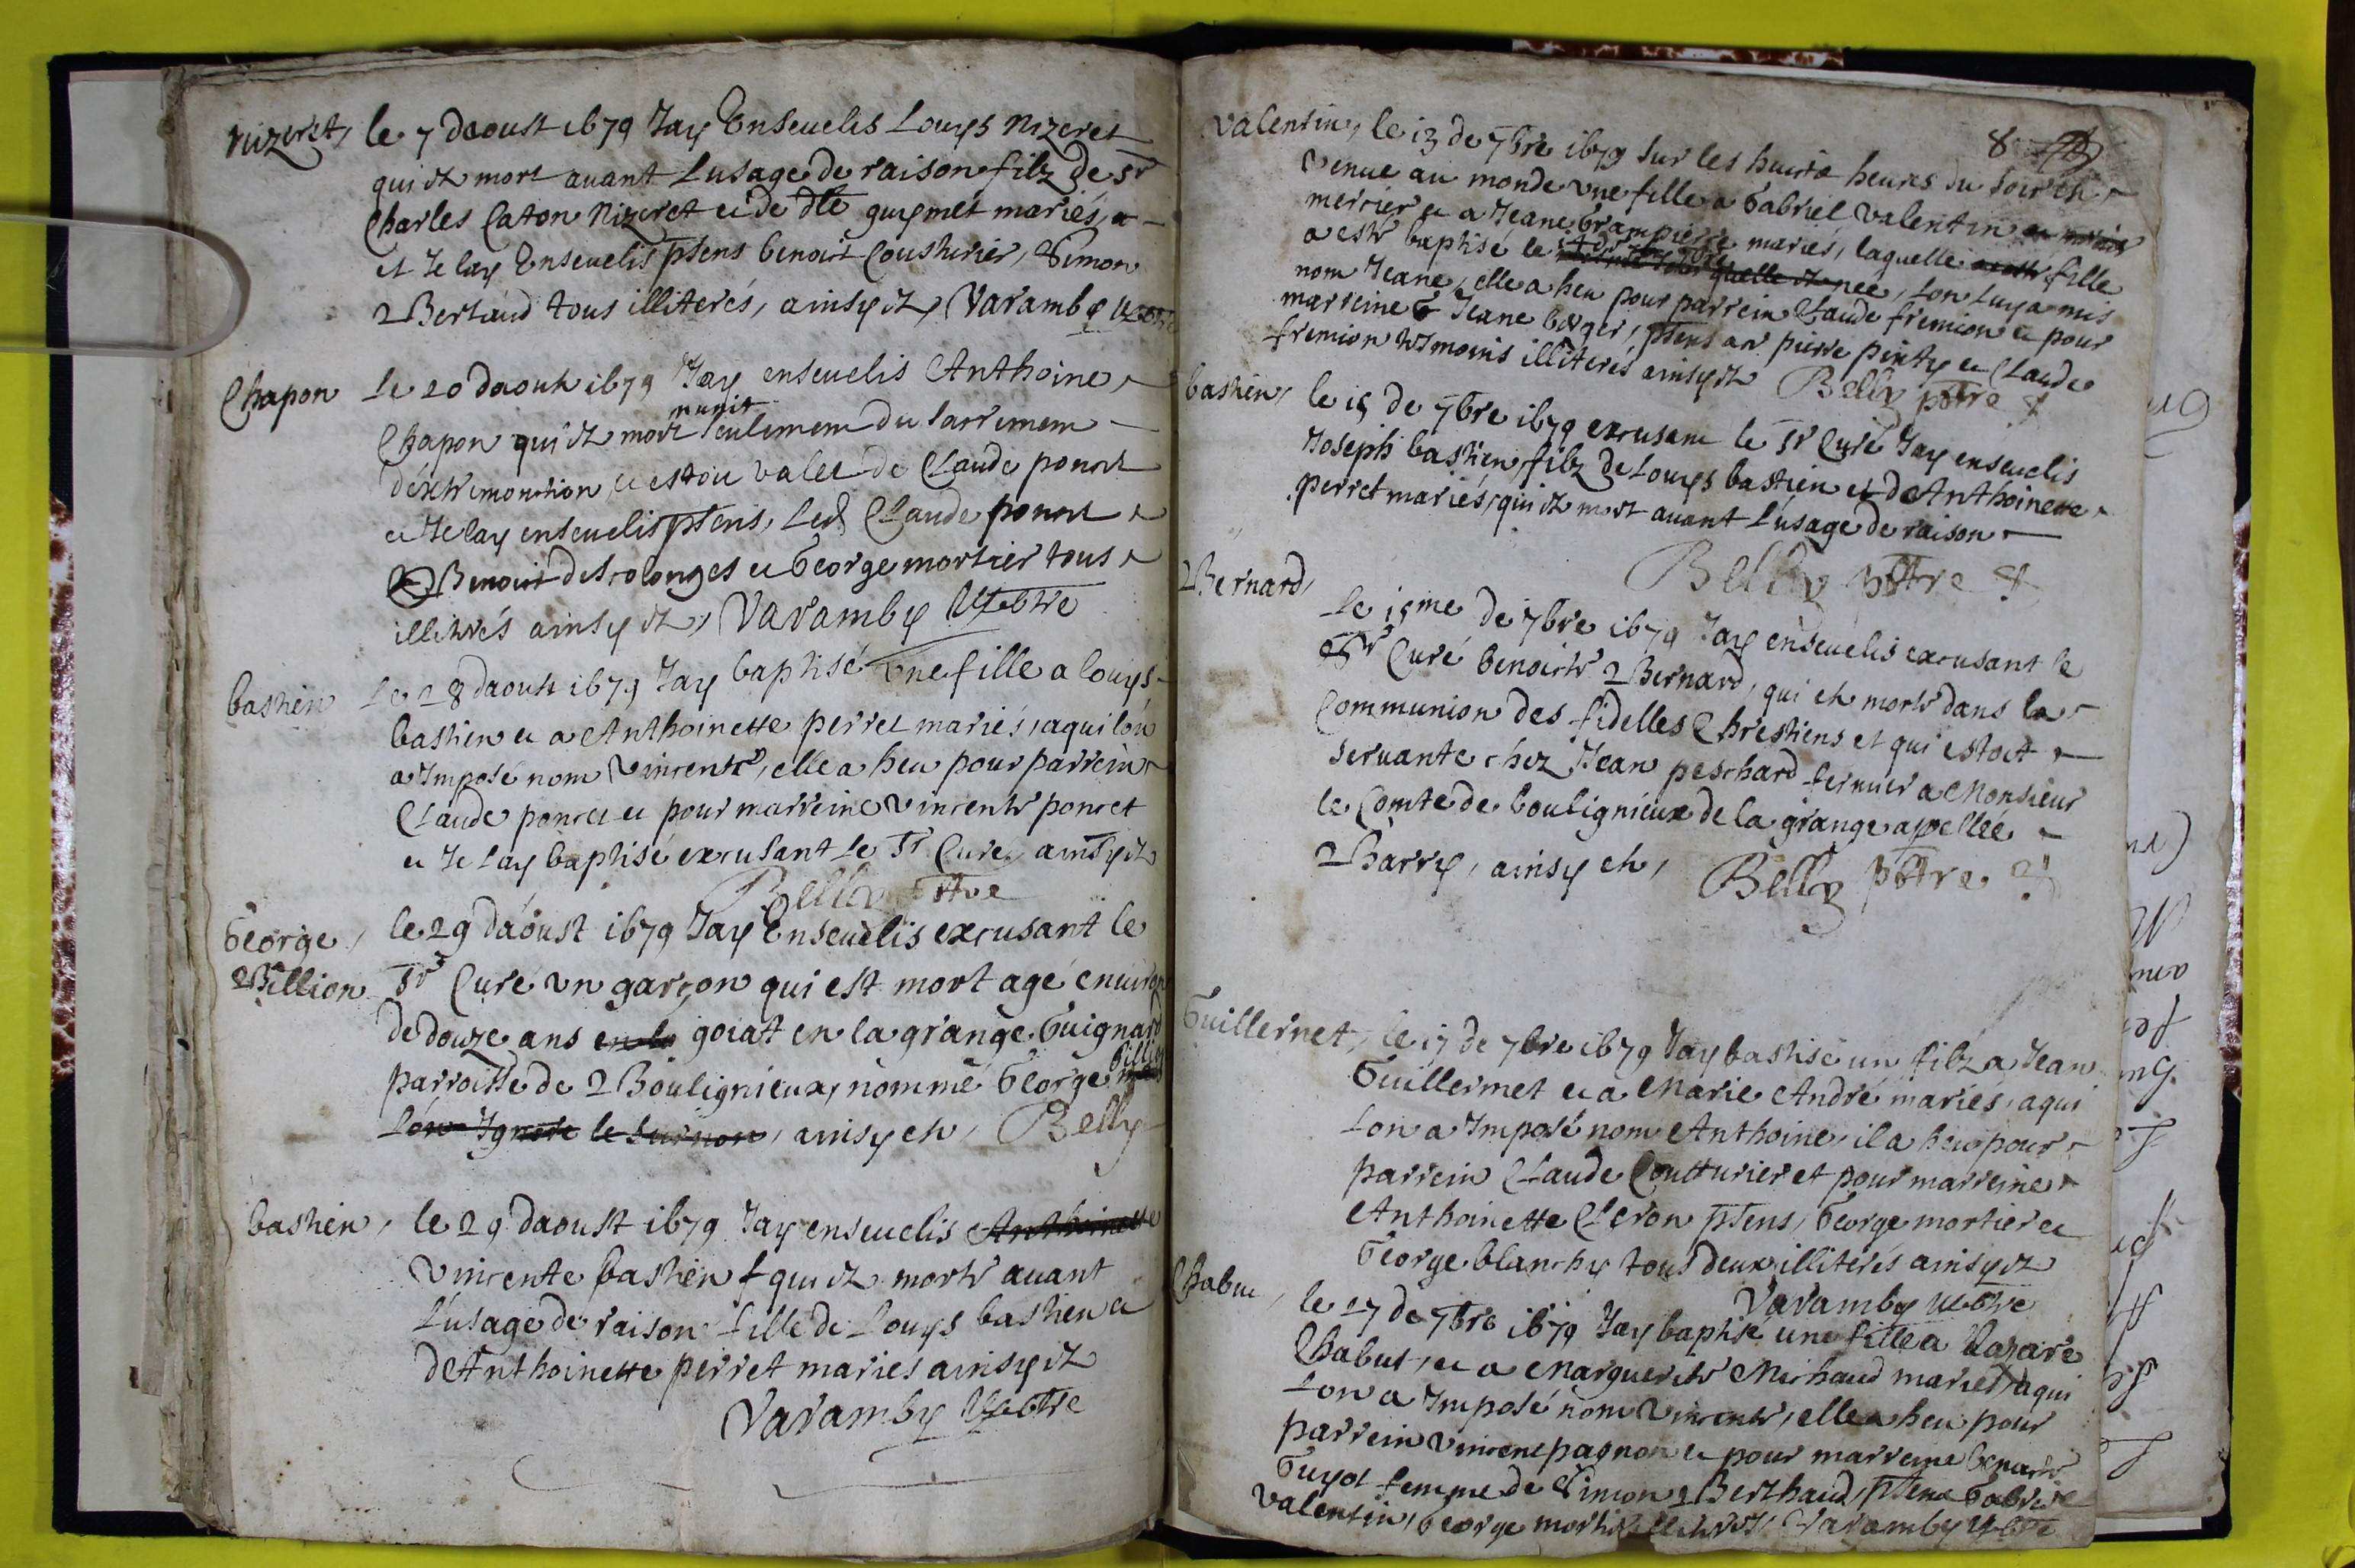 Nizeret, le 7 daoust 1679 Jay Enseuelis Louys Nizeret
qui st mort auant Lusage de raison filz de sr
Charles Caton Nizeret et de dlle guymet mariés
et Je lay Enseuelis psens benoist Cousturier, Simon
Bertaud tous illiterés, ainsy st, Varamby
Chapon le 20 daoust 1679 Jay enseuelis Anthoine
Chapon qui st mort munit seulement du sacrement
dextremonction, et estoit valet de Claude poncet
et Je lay enseuelis psens, led Claude poncet
et Benoist descolonges et George mortier tous
illiterés ainsy st, Varamby
bastien le 28 daoust 1679 Jay baptisé vne fille a louys
bastien et a Anthoinette perret mariés, aqui lon
a Imposé nom Vincente, elle a heu pour parrein
Claude poncet et pour marreine vincente poncet
et Je lay baptisé excusant le sr Curé, ainsy st
Belly ptre
George le 29 daoust 1679 Jay Enseuelis excusant le
Billion sr Curé vn garçon qui est mort agé enuiron
de douze ans en la goiat en la grange Guignard
billion
parroisse de Boulignieux, nommé George
lon Ignore le surnon, ainsy est, Belly
bastien, le 29 daoust 1679 Jay enseuelis Anthoinette
vincente bastien qui st morte auant
l'usage de raison fille de Louys bastien et
dAnthoinette perret mariés ainsy st
Varamby
8
Valentin, le 13 de 7bre 1679 sur les huicte heures du soir est
venue au monde vne fille a Gabriel valentin
mercier et a Jeane Grampierre mariés, laquelle fille
a este baptisé le quelle st née, lon luy a mis
nom Jeane, elle a heu pour parrein Claude fremion et pour
marreine Jeane berger, psens pierre et Claude
fremion tesmoins illiterés ainsy st Belly ptre
bastien, le 15 de 7bre 1679 excusant le sr Curé Jay enseuelis
Joseph bastien filz de Louys bastien et dAnthoinette
perret mariés, qui st mort auant l'usage de raison
Belly ptre
Bernard, le 15me de 7bre 1679 Jay enseuelis excusant le
sr Curé benoiste Bernard, qui est morte dans la
Communion des fidelles Chrestiens et qui estoit
seruante chez Jean peschard fermier a Monsieur
le Comte de boulignieux de la grange apellée
Barry, ainsy est, Belly ptre
Guillermet, le 17 de 7bre 1679 Jay baptisé un filz a Jean
Guillermet et a Marie André mariés, aqui
Lon a Imposé nom Anthoine, il a heu pour
parrein Claude Coutturier et pour marreine
Anthoinette Cleron psens, George mortier et
George blanchy tous deux illiterés ainsy st
Varamby
Chabut, le 27 de 7bre 1679 Jay baptisé une fille a Nazaire
Chabut, et a Marguerite Michaud mariés, aqui
Lon a Imposé nom vincente, elle a heu pour
parrein vincent pagnon et pour marreine benoiste
Guyot femme de Simon Berthaud, psens Gabriel
valentin, George mortier illiterés, Varamby